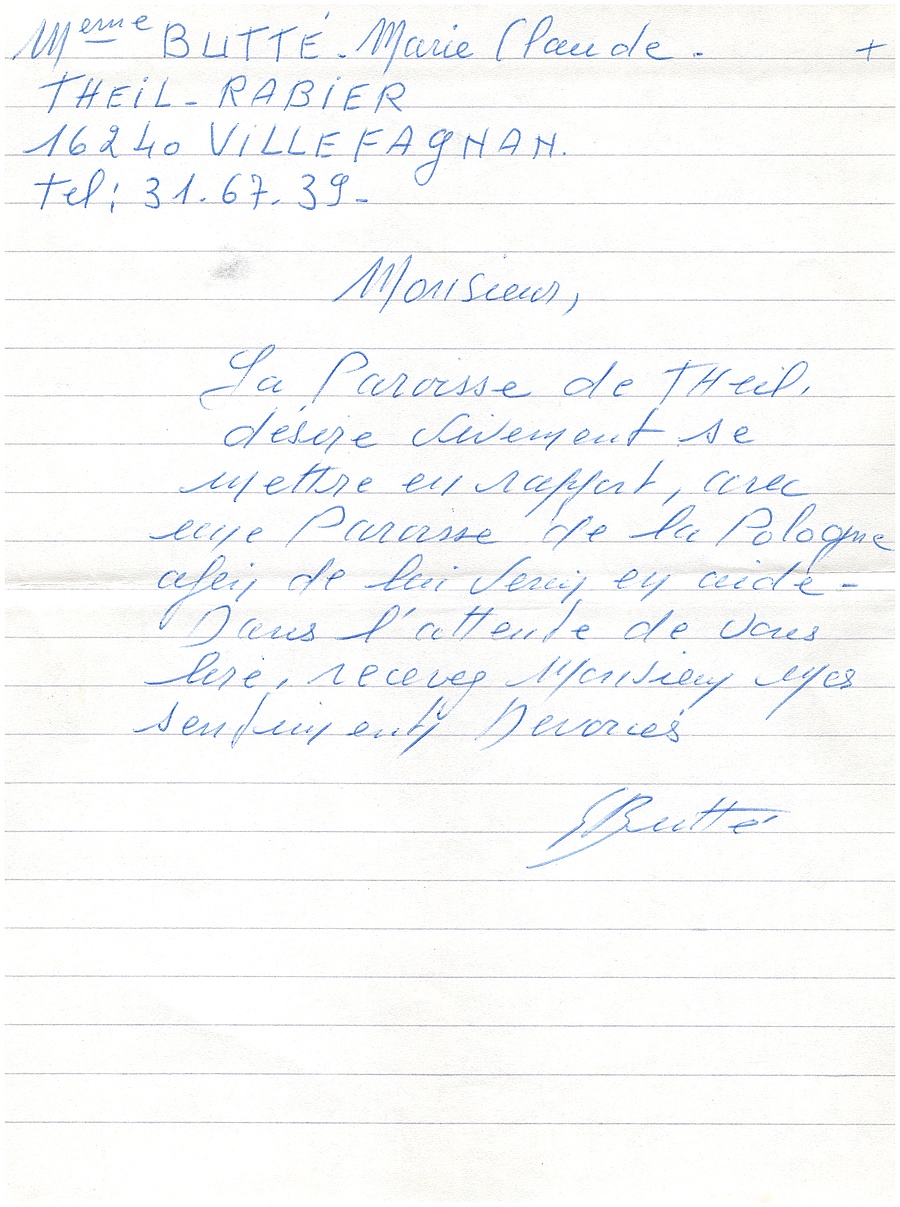 Meme BUTTÉ - Marie Claude - +
THEIL - RABIER
16240 VILLEFAGNAN.
Tel: 31.67.39-
Monsieur,
La Paroisse de THeil,
désire vivement se
mettre en rapport, avec
une Paroisse de la Pologne
afin de lui venir en aide-
Dans l'attente de vous
lire, recevez Monsieur mes
sentiments Devoués
Butté